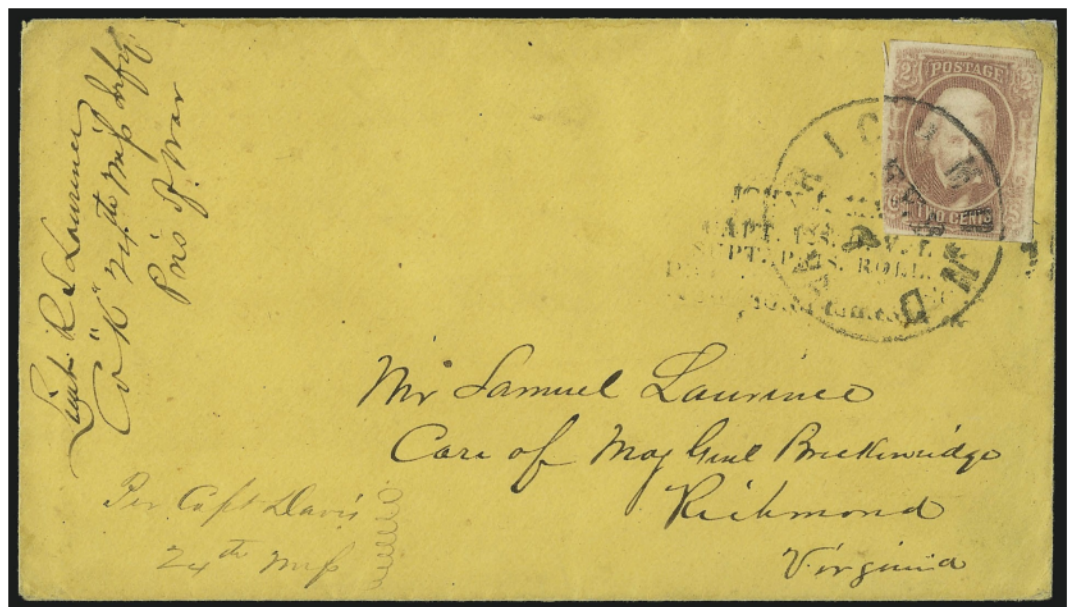 Lieut. R S Laurince
Co "K" 24th Miss Infy.
Pris of War
2
POSTAGE
TWO CENTS
RICHMOND
VA
CAPT.
SUPT. ROLL.
Mr Samuel Laurince
Care of Maj Genl Breckinridge
Richmond
Virginia
Per Capt Davis
24th Miss